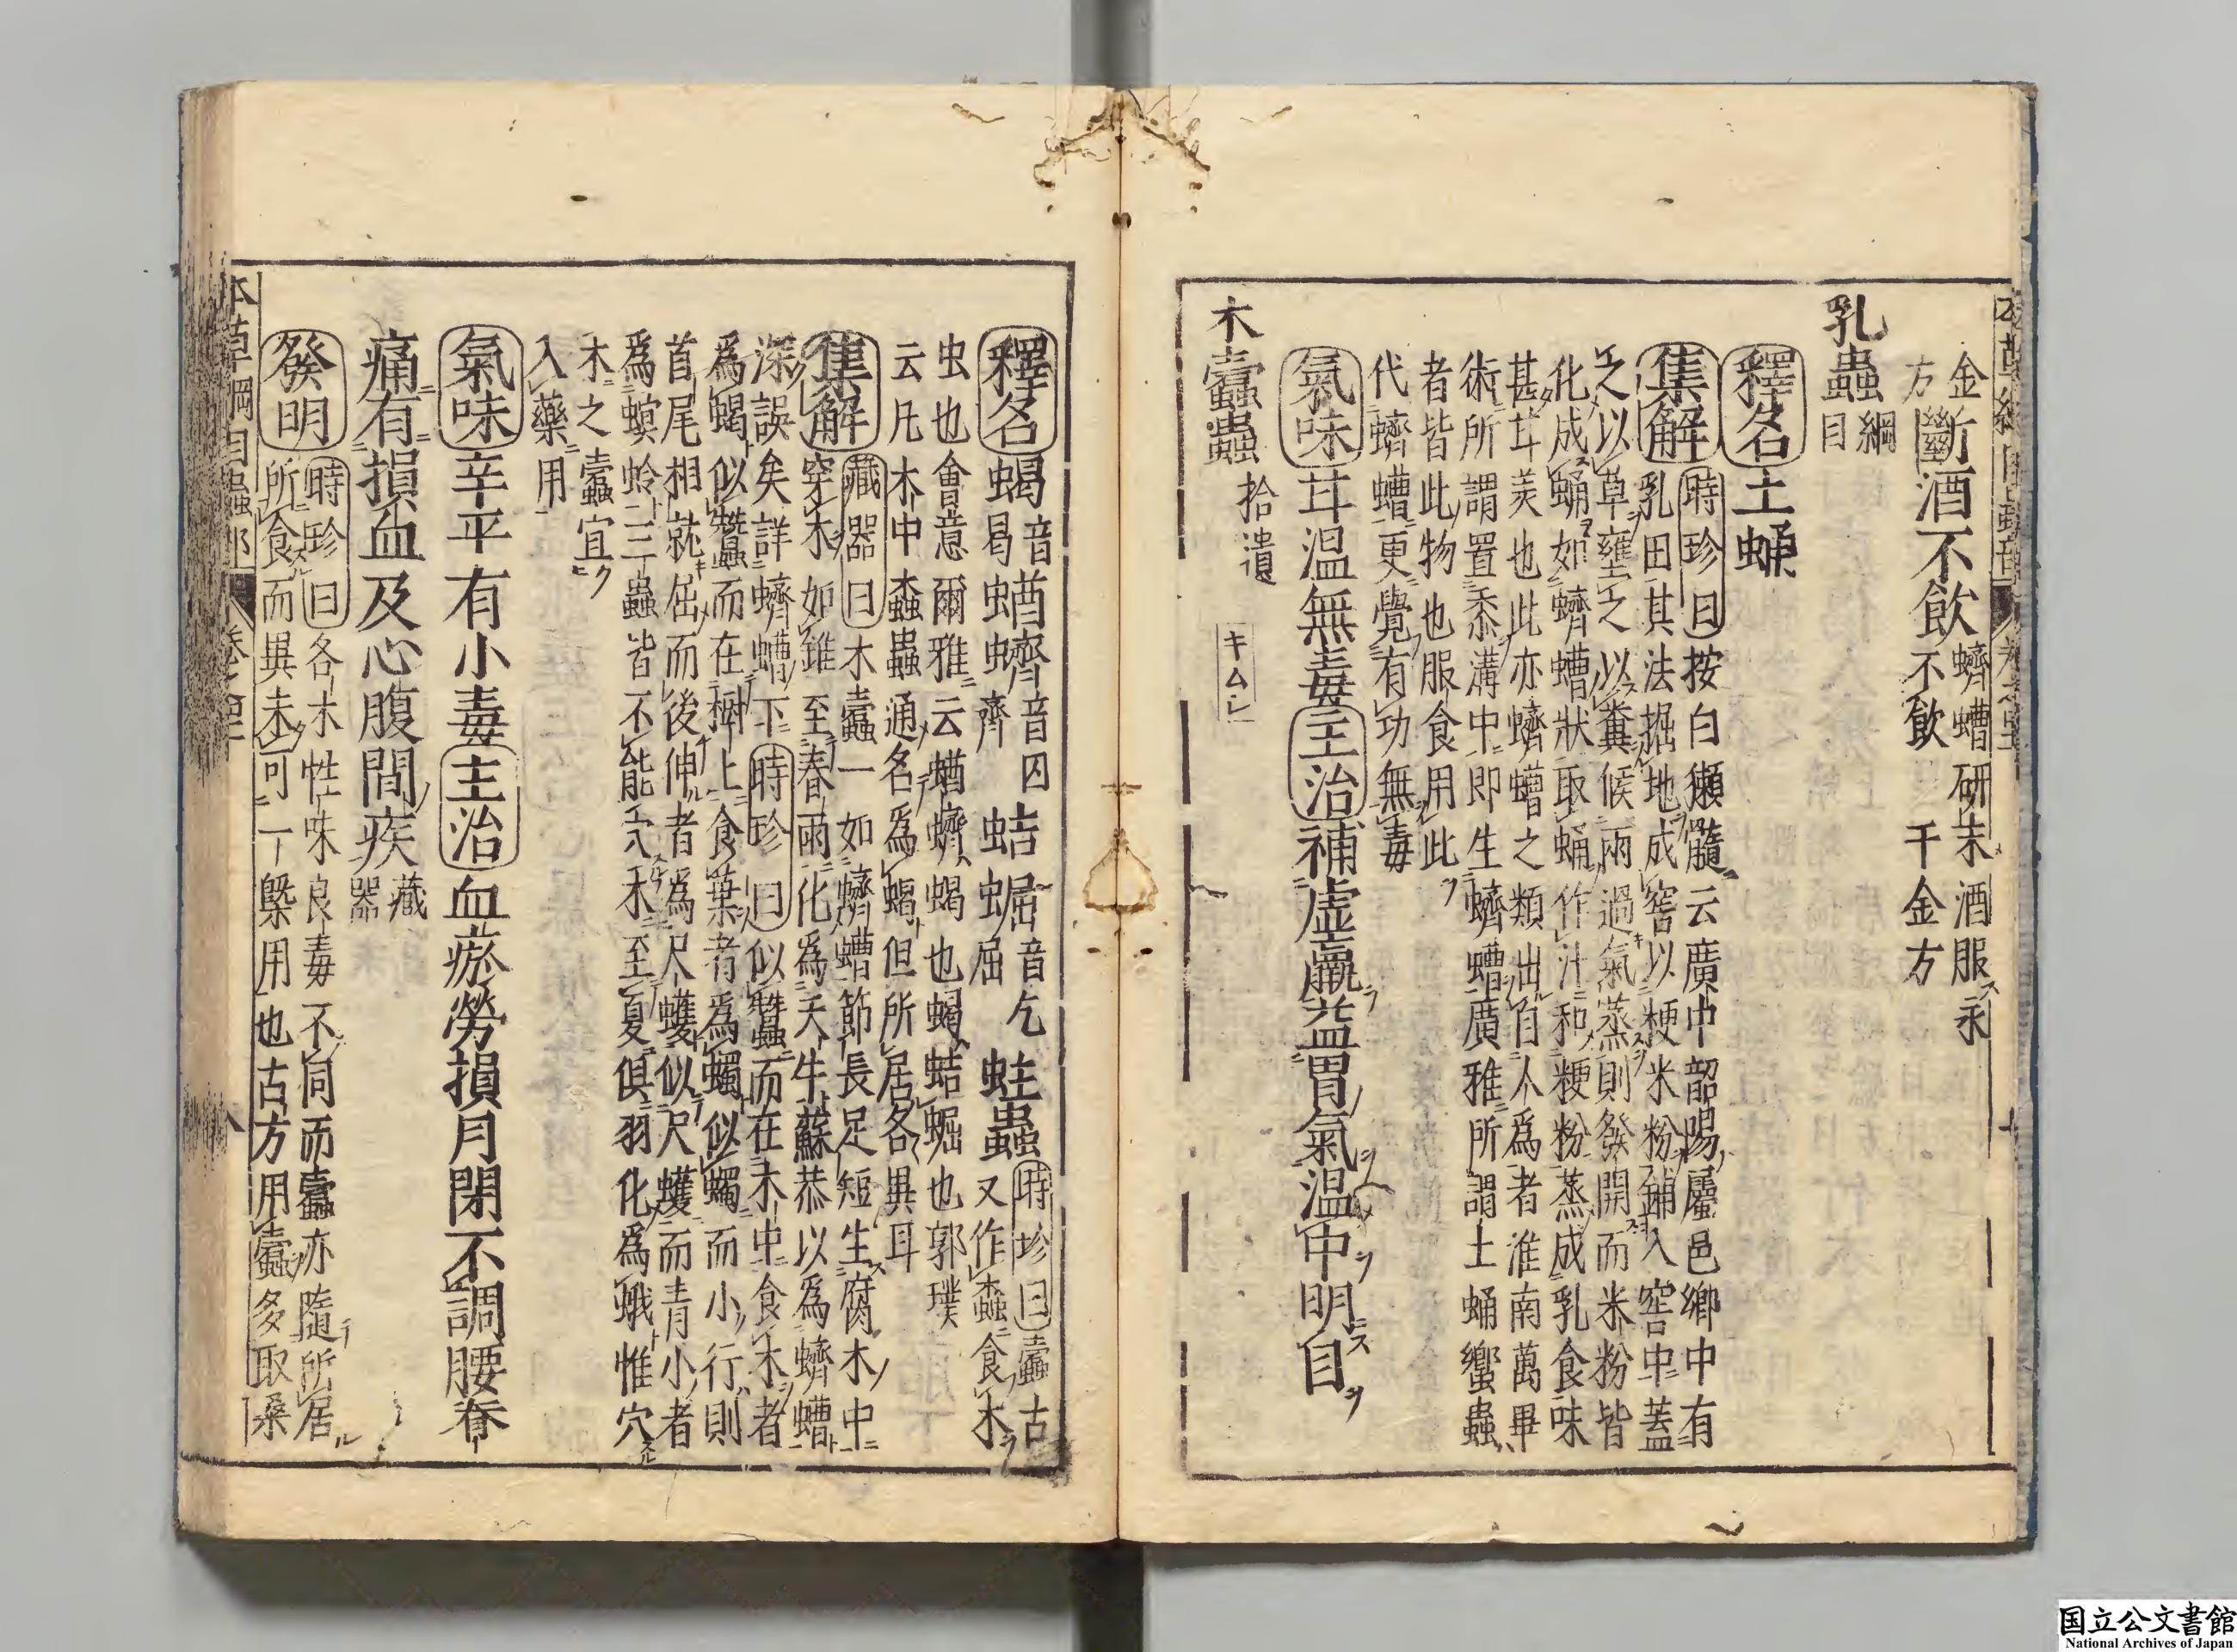 金
方斷酒不飲蠐螬研末酒服永
不飲千金方
乳蟲綱目
釋名土蛹
集解時珍曰按白獺髓云廣中韶陽屬邑鄉中有
乳田其法掘地成窖以粳米粉鋪入窖中蓋
之以草壅之以糞候雨過氣蒸則發開而米粉皆
化成蛹如蠐螬狀取蛹作汁和粳粉蒸成乳食味
甚甘美也此亦蠐螬之類出自人爲者淮南萬畢
術所謂置黍溝中即生蠐螬廣雅所謂土蛹蠁蟲
者皆此物也服食用此
代蠐螬更覺有功無毒
氣味甘温無毒主治補虚羸益胃氣温中明目
木蠹蟲拾遺
キムシ
釋名蝎音曷蝤蠐音囚齊蛣𧌑音乞屈蛀蟲時珍曰蠹古
又作螙食木
虫也會意爾雅云蝤蠐蝎也蝎蛣𧌑也郭璞
云凡木中蠹蟲通名爲蝎但所居各異耳
集解藏器曰木蠹一如蠐螬節長足短生腐木中
穿木如錐至春雨化爲天牛蘇恭以爲蠐螬
深誤矣詳蠐螬下時珍曰似蠶而在木中食木者
爲蝎似蠶而在樹上食葉者爲蠋似蠋而小行則
首尾相就屈而後伸者爲尺蠖似尺蠖而青小者
爲螟蛉三蟲皆不能穴木至夏俱羽化爲蛾惟穴
木之蠹宜
入藥用
氣味辛平有小毒主治血瘀勞損月閉不調腰脊
痛有損血及心腹間疾藏器
發明時珍曰各木性味良毒不同而蠹亦隨所居
所食而異未可一槩用也古方用蠹多取桑
本草綱目蟲部 卷之四十 八
国立公文書館
National Archives of Japan